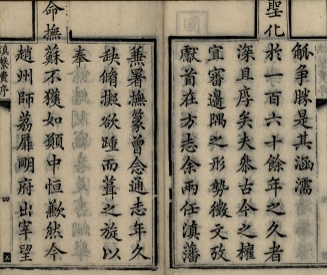 聖化
觚爭勝是其涵濡
於一百六十餘年之久者
深且厚矣夫粲古今之權
宜審邊隅之形勢徵文攷
獻首在方志余兩任滇藩
兼署撫篆曾念通志年久
缺脩擬欲踵而葺之旋以
奉
命撫蘇不獲如願中恒歉然今
趙州師荔扉明府出宰望
滇繫賚序
四